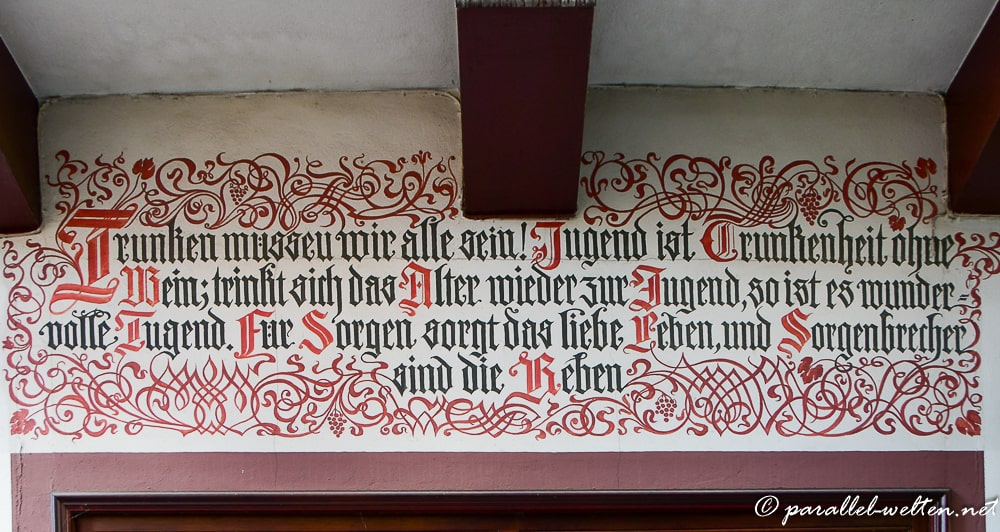 Trunken mussen wir alle sein! Jugend ist Trunkenheit ohne
Wein; trinkt sich das Alter wieder zur Jugend, so ist es wunder-
volle Tugend. Für Sorgen sorgt das liebe Leben, und Sorgenbrecher
sind die Reben
© parallel-welten.net